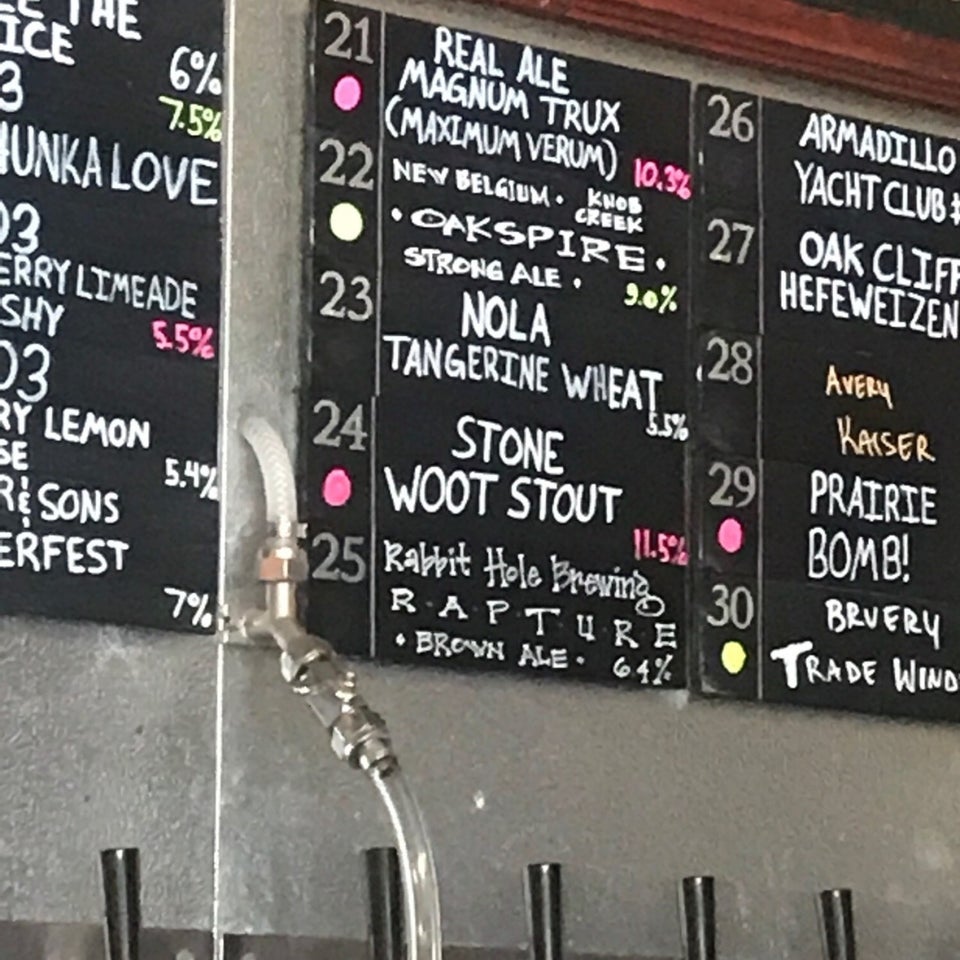 THE
ICE
6%
3
7.5%
HUNKA LOVE
03
ERRY LIMEADE
SHY
5.5%
03
RY LEMON
SE
5.4%
R & SONS
ERFEST
7%
21
REAL ALE
MAGNUM TRUX
(MAXIMUM VERUM)
10.3%
22
NEW BELGIUM · KNOB
CREEK
· OAKSPIRE ·
STRONG ALE ·
9.0%
23
NOLA
TANGERINE WHEAT
5.5%
24
STONE
WOOT STOUT
11.5%
25
Rabbit Hole Brewing
RAPTURE
· BROWN ALE · 6.4%
26
ARMADILLO
YACHT CLUB
27
OAK CLIFF
HEFEWEIZEN
28
AVERY
KAISER
29
PRAIRIE
BOMB!
30
BRUERY
TRADE WIND